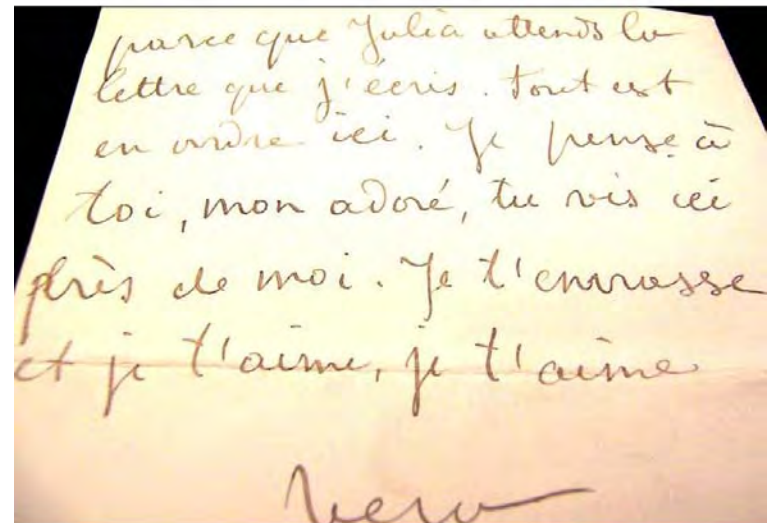 parce que Julia attends la
lettre que j'écris. tout est
en ordre ici. Je pense à
toi, mon adoré, tu vis ici
près de moi. Je t'emrasse
et je t'aime, je t'aime
Vera